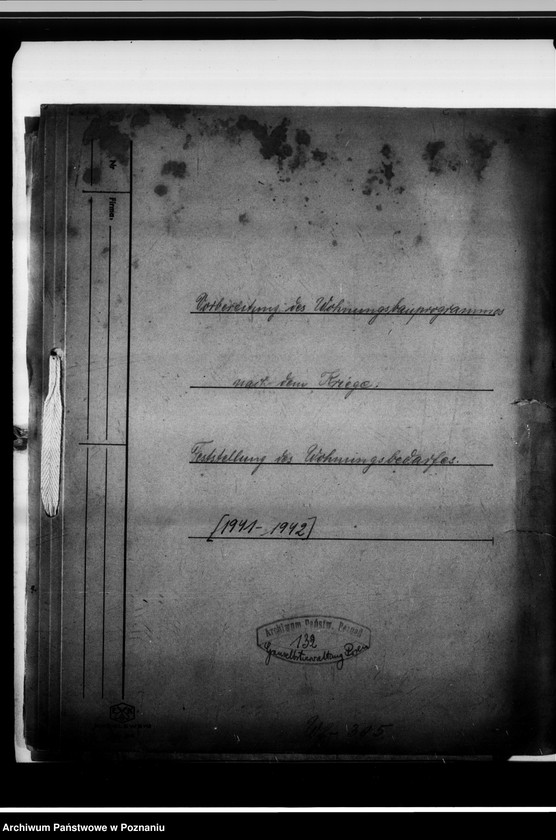 Nr
Firma:
Vorbereitung des Wohnungsbauprogrammes
nach dem Kriege.
Feststellung des Wohnungsbedarfes.
[1941-1942]
Archiwum Państw. Poznań
132
Gauselbstverwaltung Posen
Archiwum Państwowe w Poznaniu